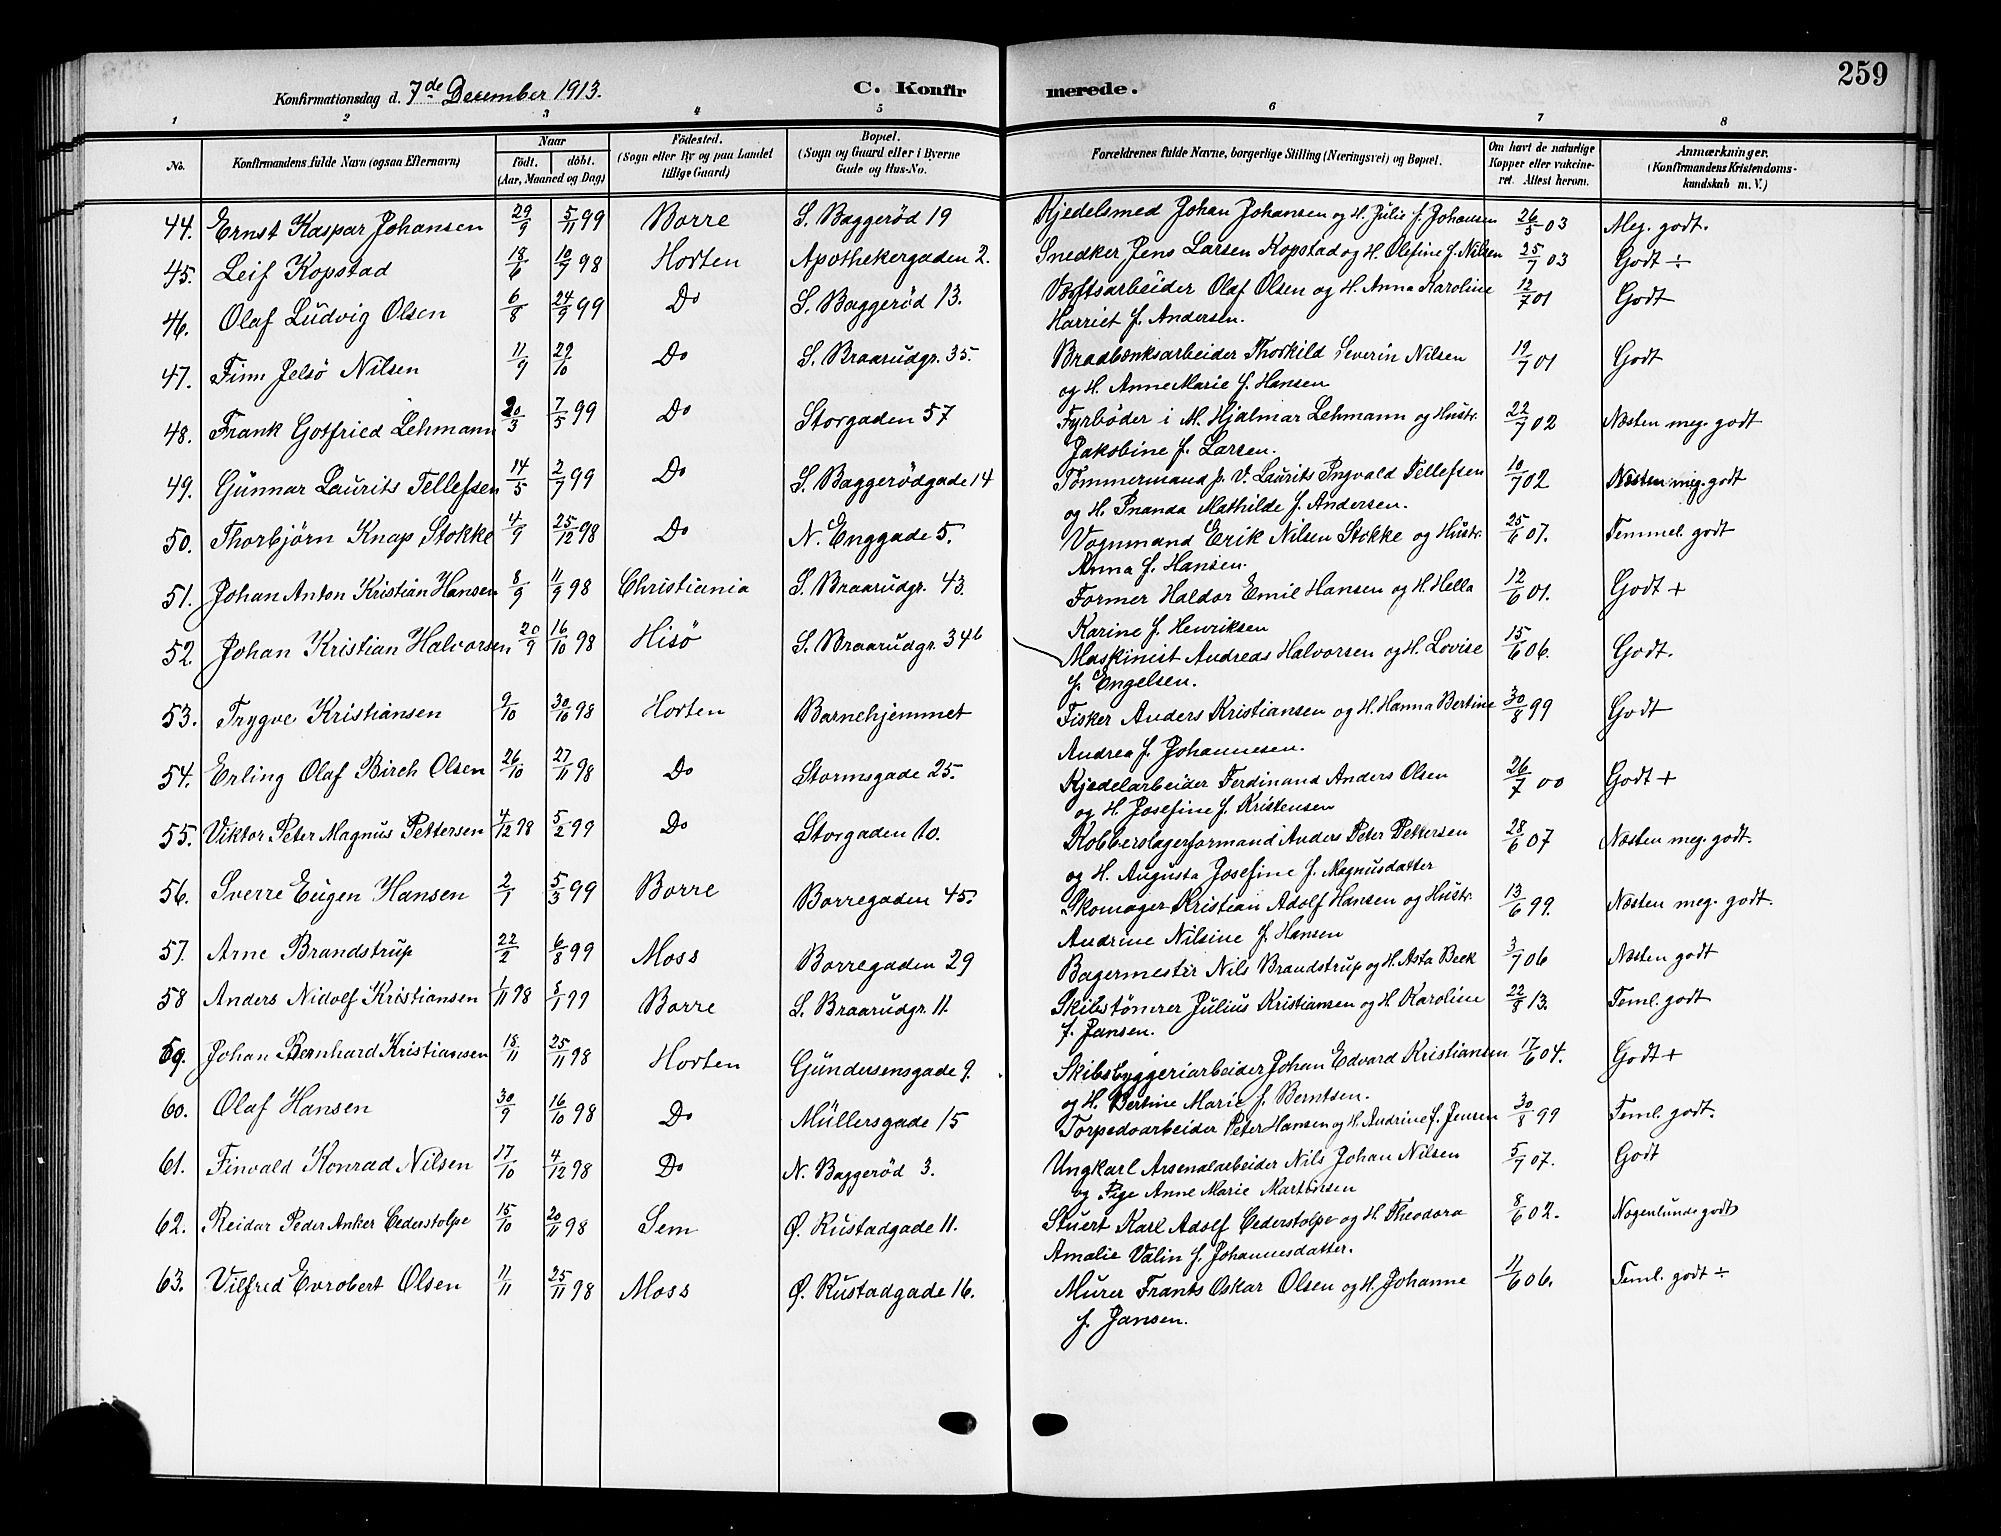 259
Konfirmationsdag d. 7de December 1913.
C. Konfirmerede.
1 2 3 4 5 6 7 8
No.
Konfirmandens fulde Navn (ogsaa Efternavn)
Naar
født. døbt.
(Aar, Maaned og Dag)
Fødested.
(Sogn eller By og paa Landet
tillige Gaard)
Bopæl.
(Sogn og Gaard eller i Byerne
Gade og Hus-No.
Forældrenes fulde Navne, borgerlige Stilling (Næringsvei) og Bopæl.
Om havt de naturlige
Kopper eller vakcine-
ret. Attest herom.
Anmærkninger.
(Konfirmandens Kristendoms-
kundskab m. V.)
44. Ernst Kaspar Johansen 29/9 5/11 99 Borre S. Baggerød 19 Kjedelsmed Johan Johansen og H. Julie f. Johansen 26/5 03 Meg. godt.
45. Leif Kopstad 18/6 10/7 98 Horten Apothekergaden 2. Snedker Jens Larsen Kopstad og H. Olefine f. Nilsen 25/7 03 Godt ÷
46. Olaf Ludvig Olsen 6/8 24/9 99 Do S. Baggerød 13. Værftsarbeider Olaf Olsen og H. Anna Karoline 12/7 01 Godt
Harriet f. Andersen.
47. Finn Jelsö Nilsen 11/9 29/10 Do S. Braarudgr. 35. Braabænksarbeider Thorkild Severin Nilsen 19/7 01 Godt
og H. Anne Marie f. Hansen
48. Frank Gotfried Lehmann 20/3 7/5 99 Do Storgaden 57 Fyrbøder i M. Hjalmar Lehmann og Hustr. 22/7 02 Næsten meg. godt
Jakobine f. Larsen.
49. Gunnar Laurits Tellefsen 14/5 2/7 99 Do S. Baggerödgade 14 Tömmermand p. V. Laurits Ingvald Tellefsen 10/7 02 Næsten meg. godt
og H. Inanda Mathilde f. Andersen.
50. Thorbjörn Knap Stokke 4/9 25/12 98 Do N. Enggade 5. Vognmand Erik Nilsen Stokke og Hustr. 25/6 07. Temmel. godt
Anna f. Hansen.
51. Johan Anton Kristian Hansen 8/9 11/9 98 Christiania S. Braarudgr. 43. Former Haldor Emil Hansen og H. Hella 12/6 01. Godt +
Karine f. Henriksen
52. Johan Kristian Halvorsen 20/9 16/10 98 Hisö S. Braarudgr. 34b Maskinist Andreas Halvorsen og H. Lovise 15/6 06. Godt.
f. Engelsen.
53. Trygve Kristiansen 9/10 30/10 98 Horten Barnehjemmet Fisker Anders Kristiansen og H. Hanna Bertine 30/8 99 Godt
Andrea f. Johannesen.
54. Erling Olaf Birch Olsen 26/10 27/11 98 Do Stormsgade 25. Kjedelarbeider Ferdinand Anders Olsen 26/7 00 Godt +
og H. Josefine f. Kristensen
55. Viktor Peter Magnus Pettersen 4/12 98 5/2 99 Do Storgaden 10. Kobberslagerformand Anders Peter Pettersen 28/6 07 Næsten meg. godt.
og H. Augusta Josefine f. Magnusdatter
56. Sverre Eugen Hansen 2/1 5/3 99 Borre Borregaden 45. Skomager Kristian Adolf Hansen og Hustr. 13/6 99. Næsten meg. godt.
Andrine Nilsine f. Hansen
57. Arne Brandstrup 22/2 6/8 99 Moss Borregaden 29 Bagermester Nils Brandstrup og H. Asta Beck 3/7 06 Næsten godt
58 Anders Nidolf Kristiansen 1/11 98 8/1 99 Borre S. Braarudgr. 11. Skibstömrer Julius Kristiansen og H. Karoline 22/8 13. Teml. godt
f. Jansen.
59. Johan Bernhard Kristiansen 18/11 25/11 98 Horten Gundersensgade 9. Skibsbyggeriarbeider Johan Edvard Kristiansen 17/6 04. Godt +
og H. Bertine Marie f. Berntsen.
60. Olaf Hansen 30/9 16/10 98 Do Müllersgade 15 Torpedoarbeider Peter Hansen og H. Andrine f. Jensen 30/8 99 Teml. godt.
61. Finvald Konrad Nilsen 17/10 4/12 98 Do N. Baggerød 3. Ungkarl Arsenalarbeider Nils Johan Nilsen 5/7 07. Godt
og Pige Anne Marie Martinsen
62. Reidar Peder Anker Cederstolpe 15/10 20/11 98 Sem Ø. Rustadgade 11. Stuert Karl Adolf Cederstolpe og H. Theodora 8/6 02. Nogenlunde godt
Amalie Valin f. Johannesdatter.
63. Vilfred Evrobert Olsen 11/11 25/11 98 Moss Ø. Rustadgade 16. Murer Frants Oskar Olsen og H. Johanne 11/6 06. Teml. godt ÷
f. Jansen.